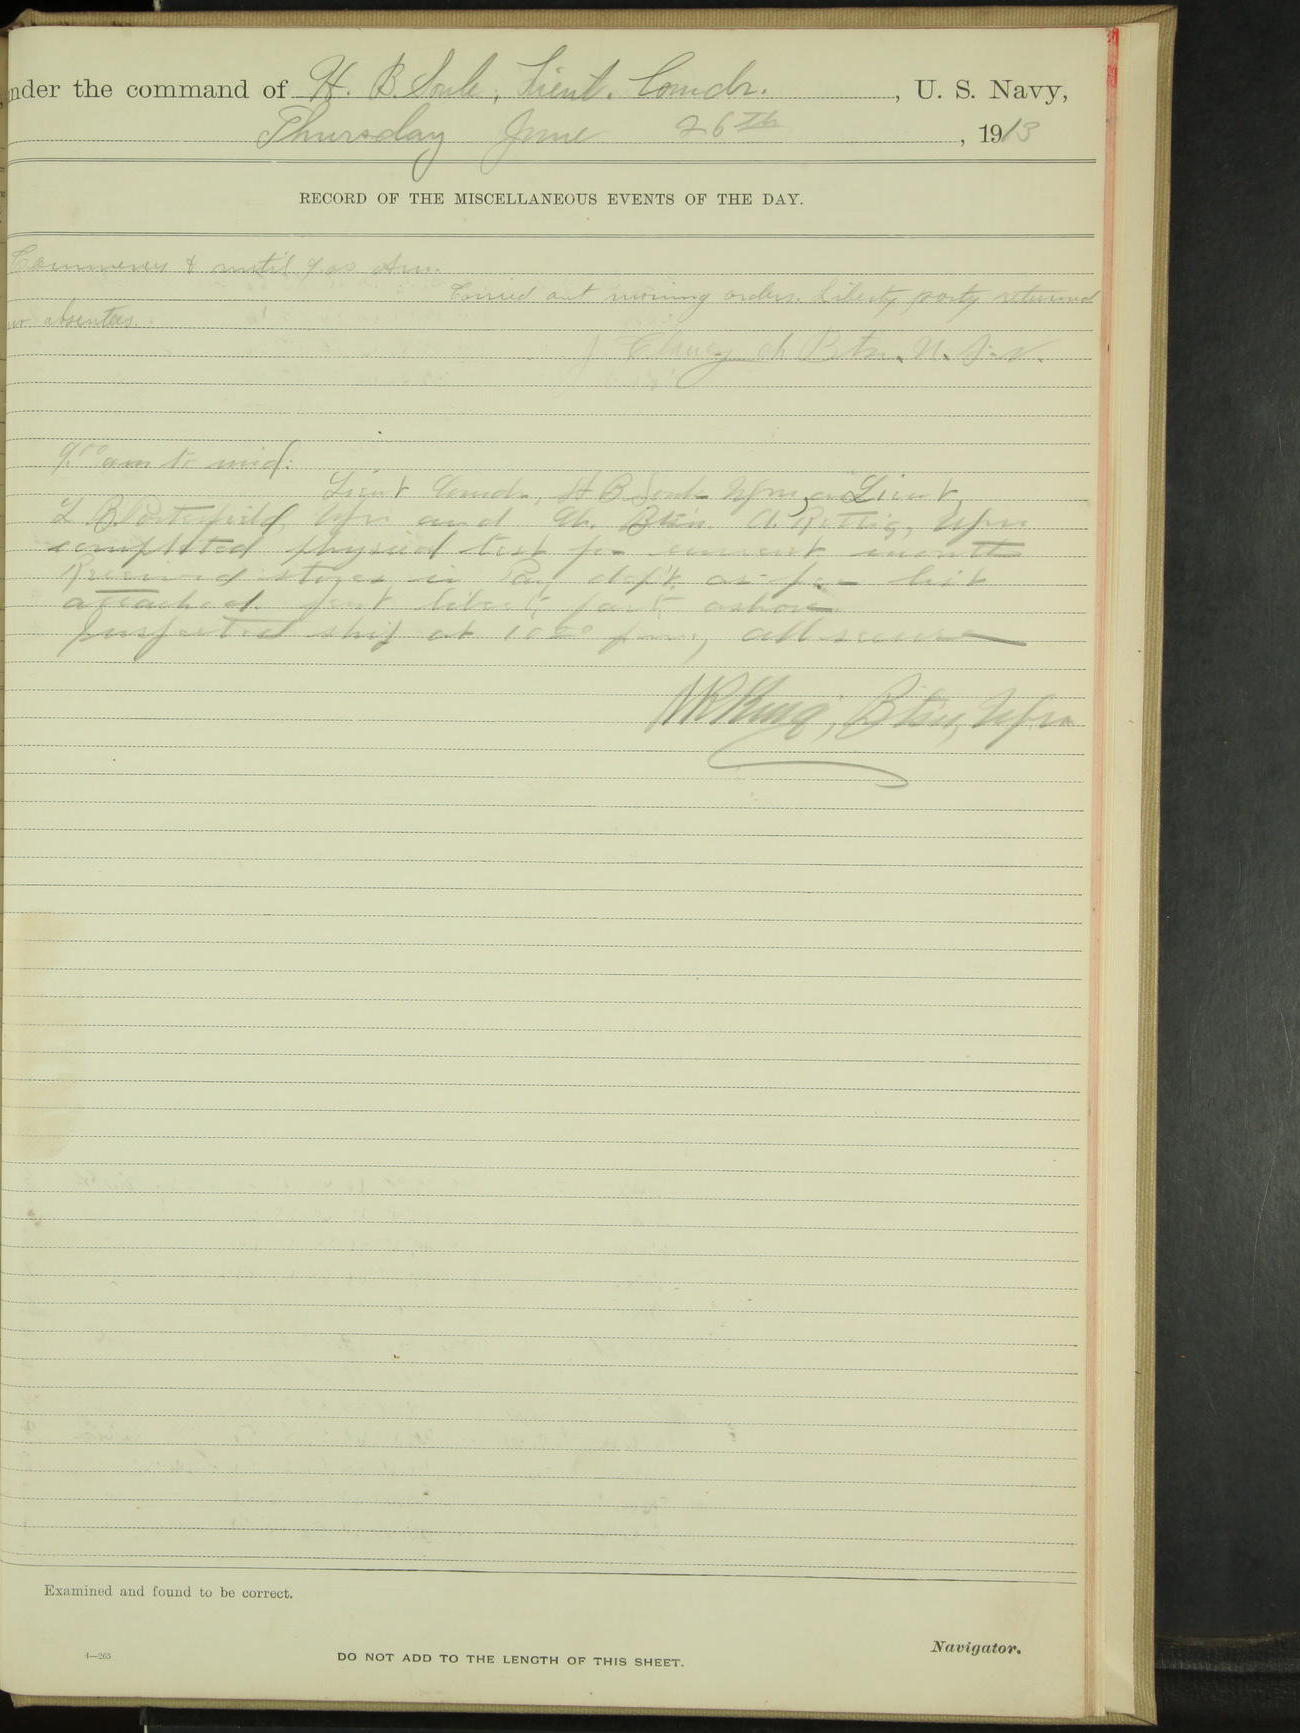 nder the command of H. B. Soule, Lieut. Comdr. , U. S. Navy,
Thursday June 26th , 1913
RECORD OF THE MISCELLANEOUS EVENTS OF THE DAY.
Commences & until 9 00 Am.
Carried out morning orders. Liberty party returned
absentees.
J Clancy ch Btsn. U. S. N.
9.00 am to mid:
Lieut Comdr, H B Soule Usn, Lieut
L B Porterfield, Usn and Ch. Btsn. A Rettig, Usn
completed physical test for current month
Received stores in Pay dept as per list
attached. Sent liberty party ashore
Inspected ship at 10 20 pm, all secure
King, Btsn, Usn
Examined and found to be correct.
Navigator.
4—265
DO NOT ADD TO THE LENGTH OF THIS SHEET.